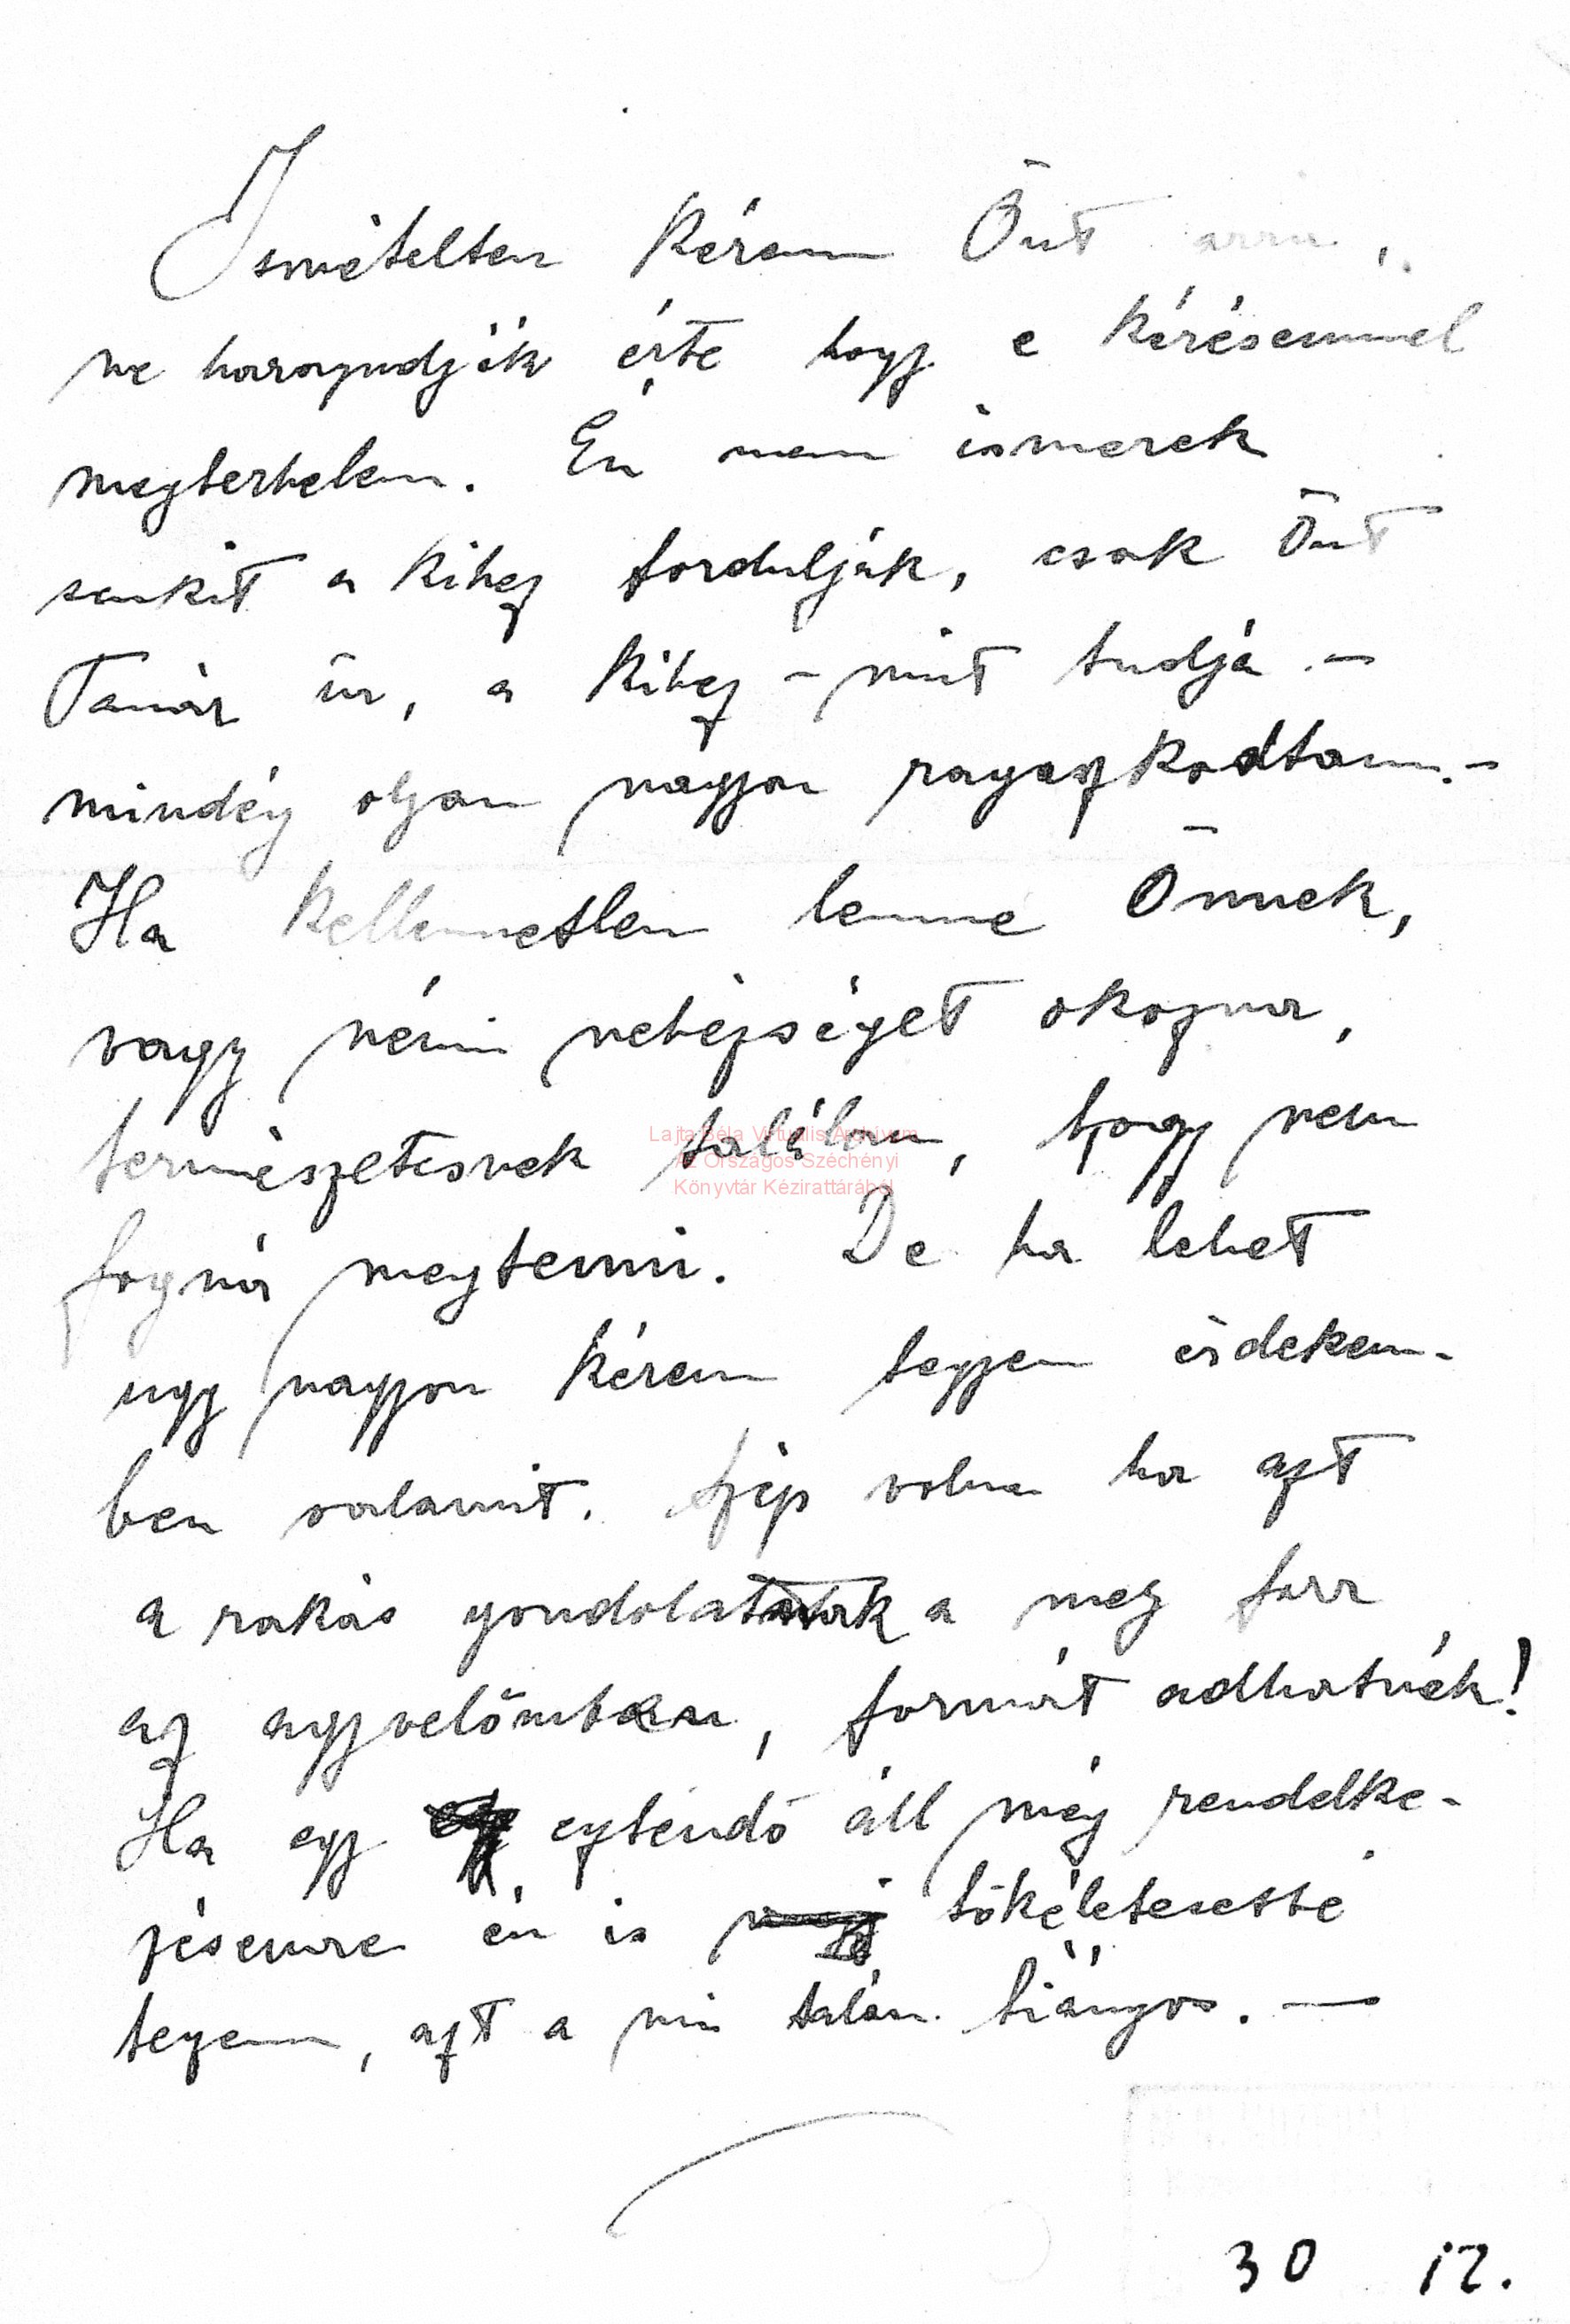 Ismételten kérem Önt arra,
ne haragudjék érte hogy e kérésemmel
megterhelem. Én nem ismerek
senkit a kihez forduljak, csak Önt
Tanár úr, a kihez – mint tudja –
mindég olyan nagyon ragaszkodtam. –
Ha kellemetlen lenne Önnek,
vagy némi nehézséget okozna,
természetesnek találom, hogy nem
fogná megtenni. De ha lehet
ugy nagyon kérem tegyen érdekem-
ben valamit. Szép volna ha azt
a rakás gondolatnak a meg forr
az agyvelőmben, formát adhatnék!
Ha egy esztendő áll még rendelke-
zésemre én is tökéletesebbé
tegyem, azt a mi talán hiányos. —
Lajta Béla Virtuális Archívum
Az Országos Széchényi
Könyvtár Kézirattárából
30 12.